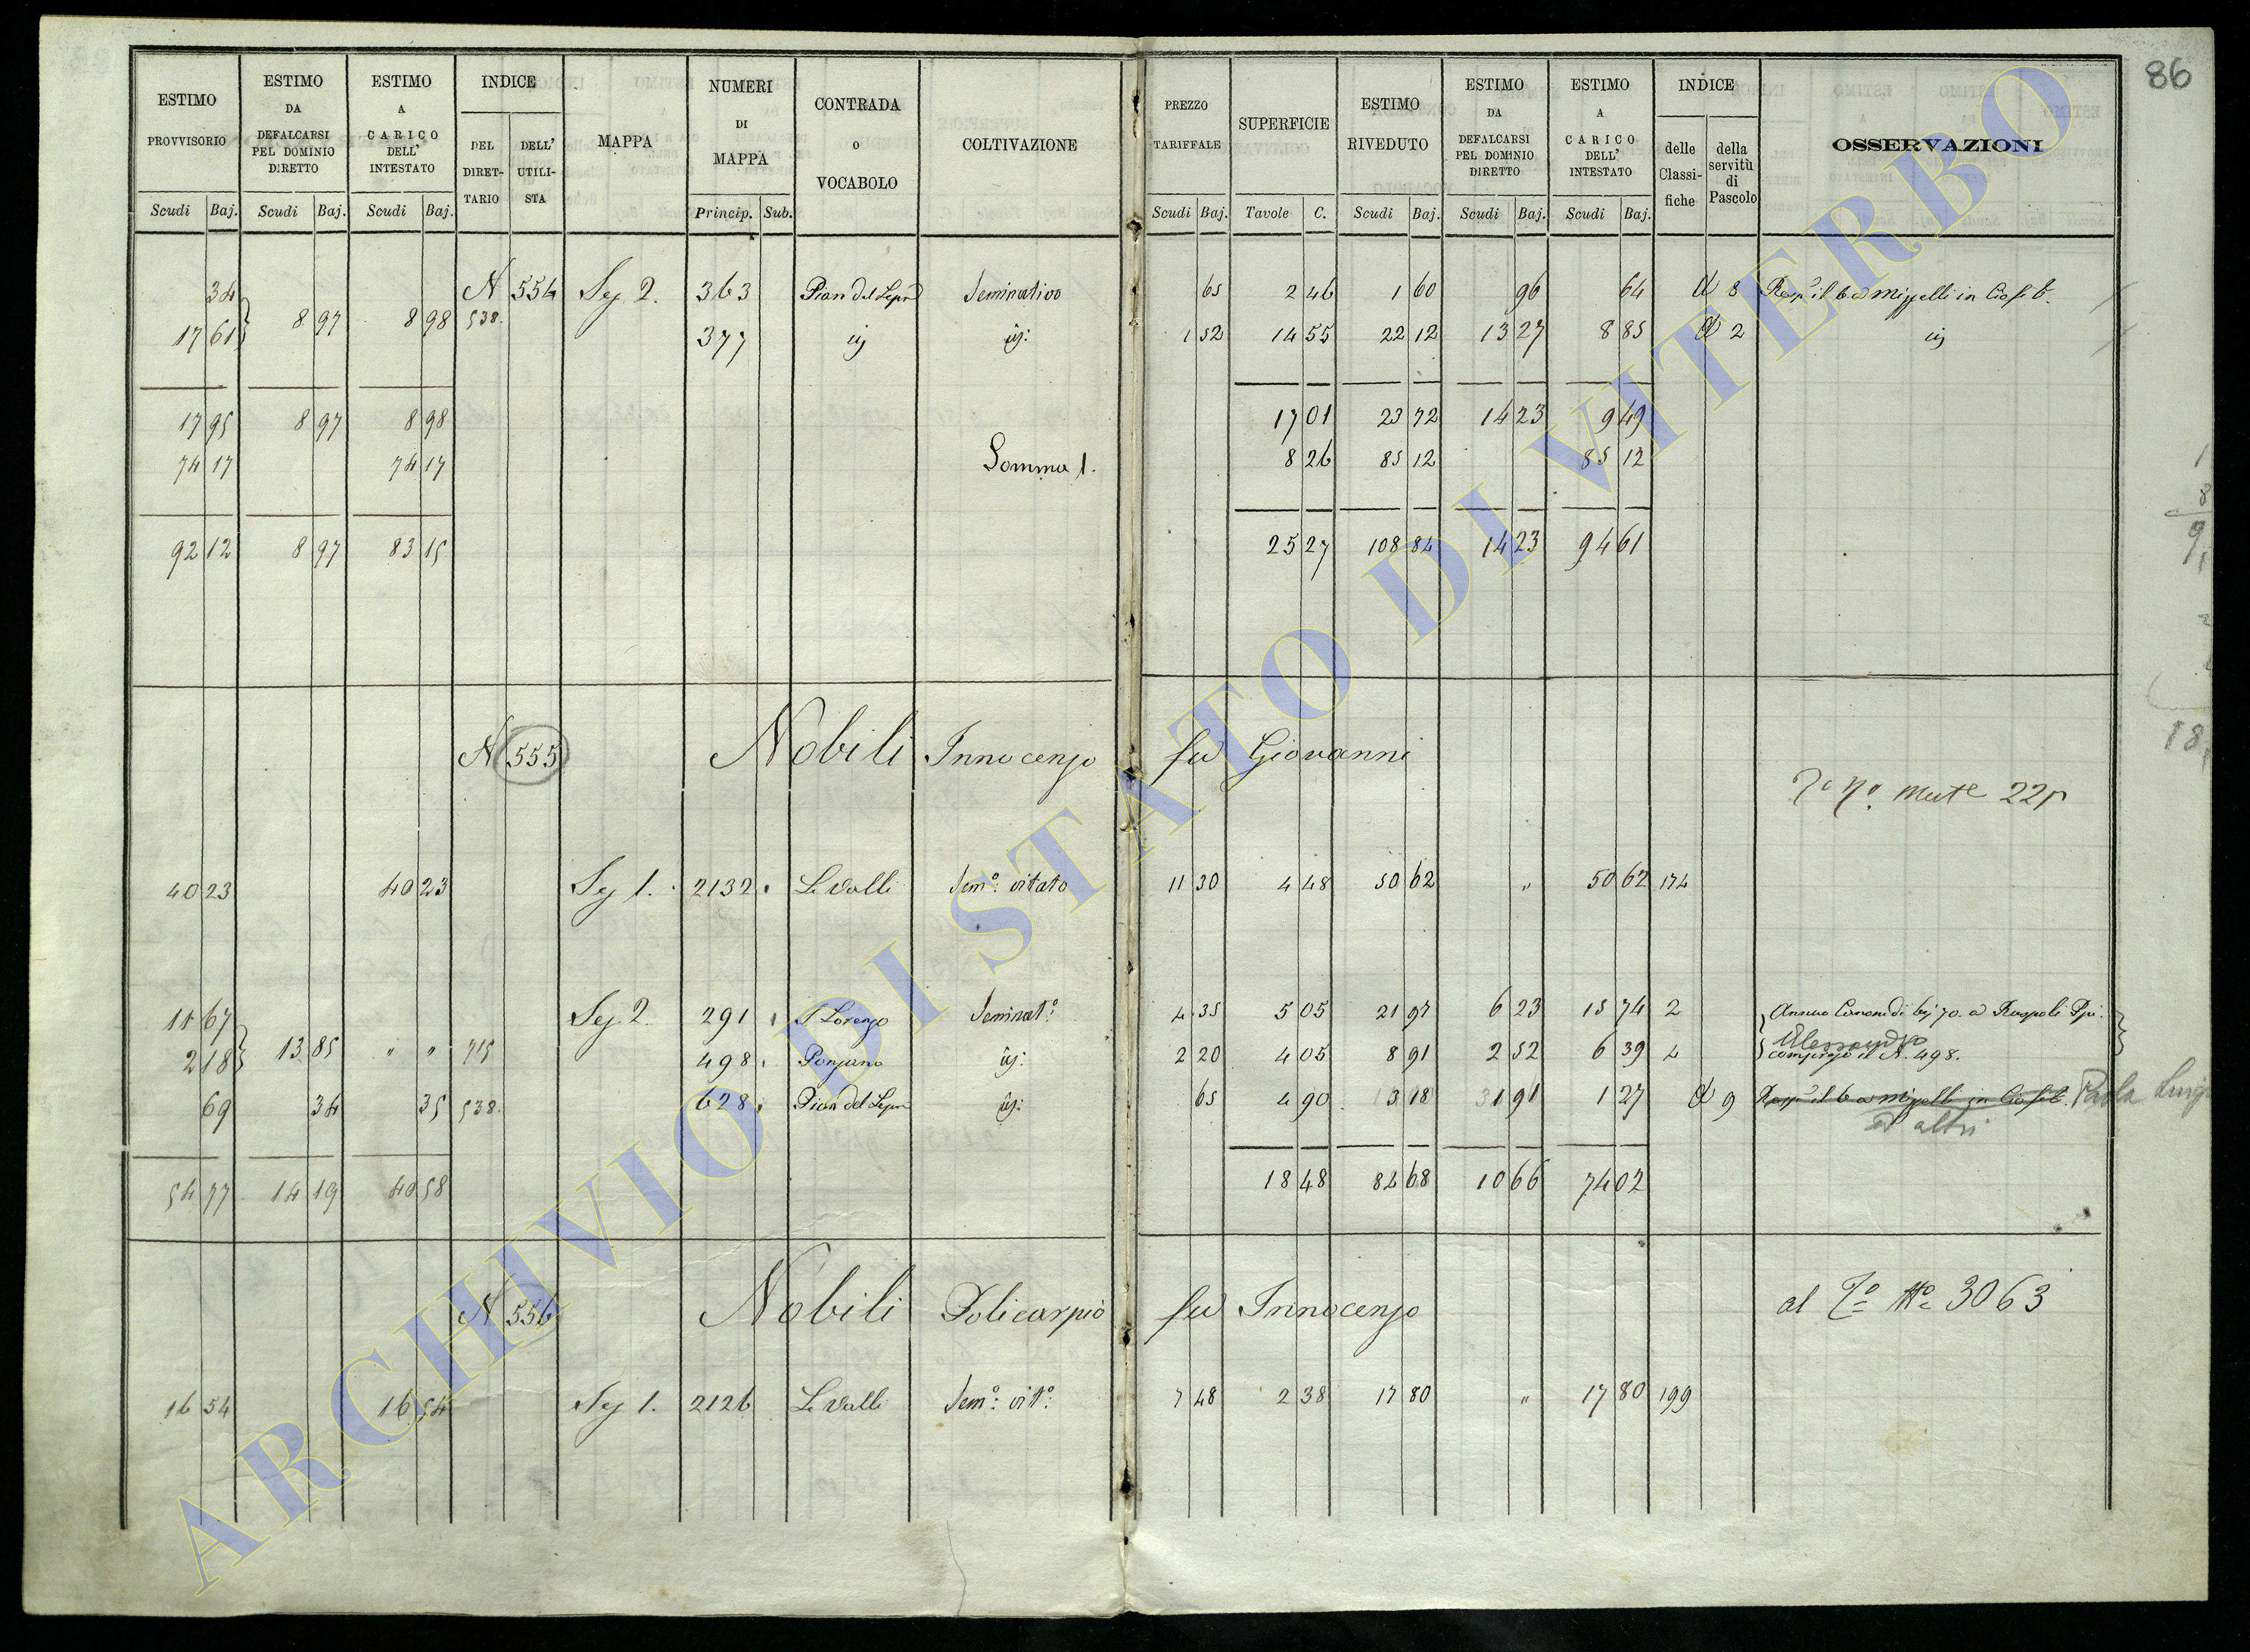 86
ESTIMO PROVVISORIO | ESTIMO DA DEFALCARSI PEL DOMINIO DIRETTO | ESTIMO A CARICO DELL' INTESTATO | INDICE DEL DIRET- TARIO | DELL' UTILI- STA | MAPPA | NUMERI DI MAPPA | CONTRADA O VOCABOLO | COLTIVAZIONE | PREZZO TARIFFALE | SUPERFICIE | ESTIMO RIVEDUTO | ESTIMO DA DEFALCARSI PEL DOMINIO DIRETTO | ESTIMO A CARICO DELL' INTESTATO | INDICE delle Classi- fiche | della servitù di Pascolo | OSSERVAZIONI
Scudi Baj. Scudi Baj. Scudi Baj. Princip. Sub. Scudi Baj. Tavole C. Scudi Baj. Scudi Baj. Scudi Baj.
34 N 554 Sez 2. 363 Pian del Lepre Seminativo 65 2 46 1 60 96 64 d 8
17 61 8 97 8 98 538. 377 1 52 14 55 22 12 13 27 8 85 d 2
17 95 8 97 8 98 17 01 23 72 14 23 9 49
74 17 74 17 Somma 1. 8 26 85 12 85 12
92 12 8 97 83 15 25 27 108 84 14 23 94 61
N 555 Nobili Innocenzo fu Giovanni
40 23 40 23 Sez 1. 2132 Le Valli Sem.º vitato 11 30 4 48 50 62 " 50 62 174
11 67 Sez 2. 291 S Lorenzo Seminat.º 4 35 5 05 21 97 6 23 15 74 2 Annuo Canone di bj 70. a Ruspoli Ppi.
Alessandro
2 18 13 85 " " 715 498 Ponzano 2 20 4 05 8 91 2 52 6 39 4 compreso il N. 498.
69 34 35 538. 628 Pian del Lepre 65 4 90 3 18 1 91 1 27 d 9 Paola Luigi
ed altri
54 77 14 19 40 58 18 48 84 68 10 66 74 02
N 556 Nobili Policarpio fu Innocenzo al 3063
16 54 16 54 Sez 1. 2126 Le Valli Sem.º vit.º 7 48 2 38 17 80 " 17 80 199
ARCHIVIO DI STATO DI VITERBO